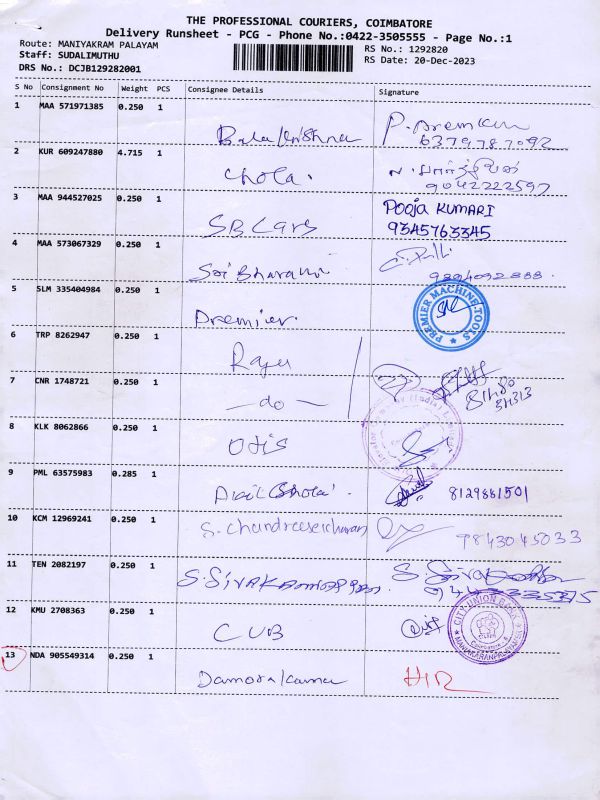 THE PROFESSIONAL COURIERS, COIMBATORE
Delivery Runsheet - PCG - Phone No.:0422-3505555 - Page No.:1
Route: MANIYAKRAM PALAYAM
RS No.: 1292820
Staff: SUDALIMUTHU
RS Date: 20-Dec-2023
DRS No.: DCJB129282001
S No Consignment No Weight PCS Consignee Details Signature
1 MAA 571971385 0.250 1 Balakrishna P. Premkum
2 KUR 609247880 4.715 1 Chola.
9042222597
3 MAA 944527025 0.250 1 SB Cars POOJA KUMARI
9345763345
4 MAA 573067329 0.250 1 Sri Bharani
5 SLM 335404984 0.250 1 Premier. PREMIER MACHINE TOOLS
6 TRP 8262947 0.250 1 Raju
7 CNR 1748721 0.250 1 —do—
8 KLK 8062866 0.250 1 Otis
9 PML 63575983 0.285 1 8129881501
10 KCM 12969241 0.250 1 S. Chandrasekharan 9843045033
11 TEN 2082197 0.250 1
12 KMU 2708363 0.250 1 CUB CITY UNION BANK
13 NDA 905549314 0.250 1 Damorakumar